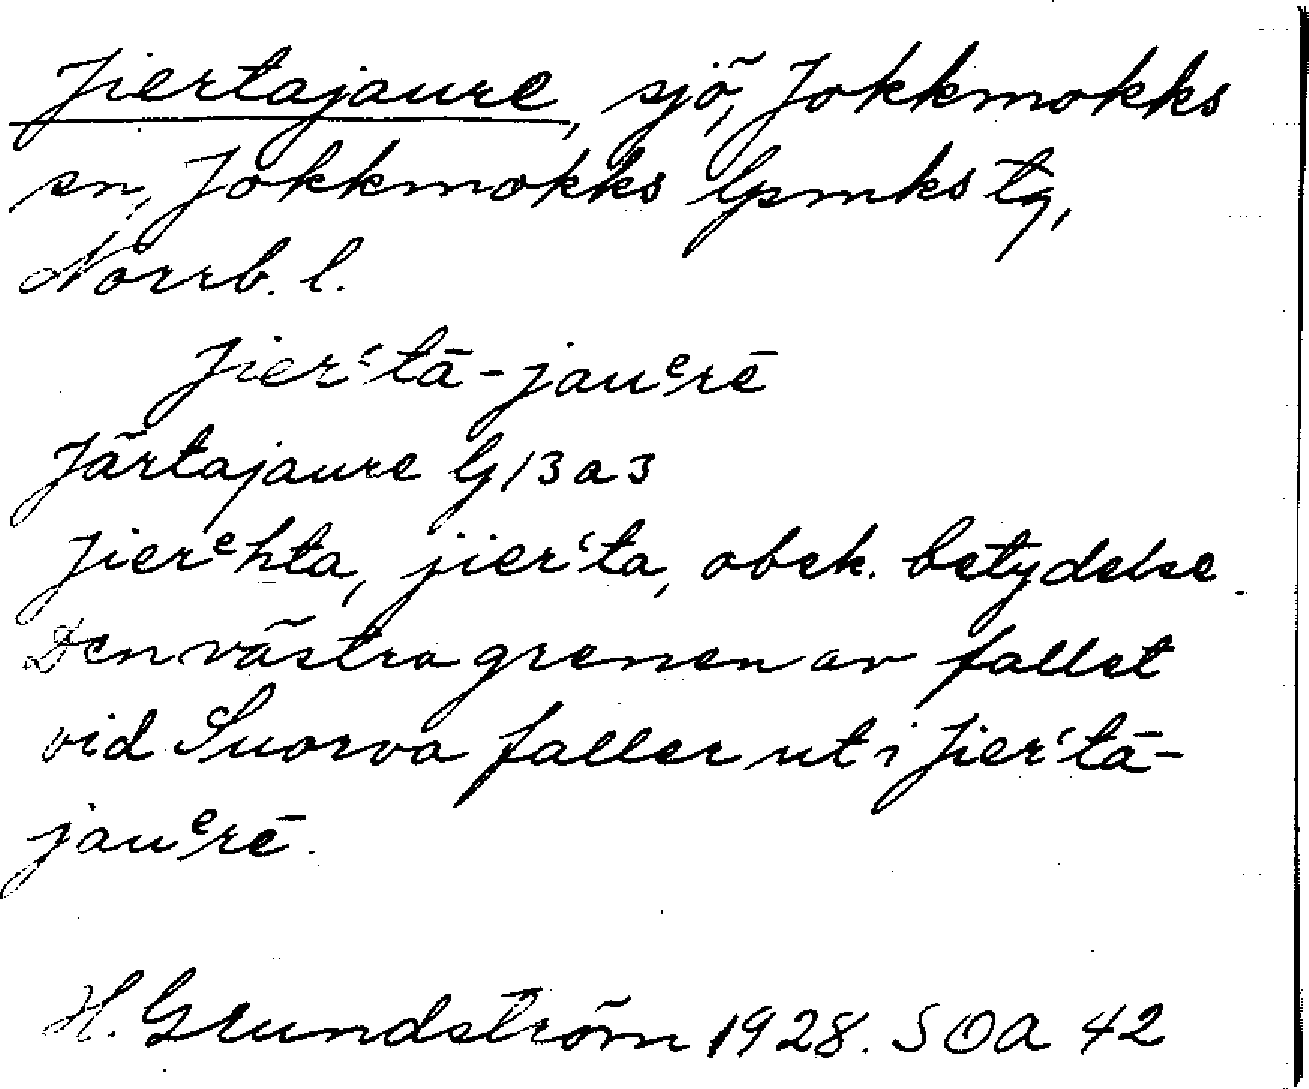 Jiertajaure, sjö, Jokkmokks
sn, Jokkmokks lpmks tg,
Norrb. l.
Jierʻtā-jauᵉrē
Järtajaure G13a3
Jierᵉhta, jierʻta, obek. betydelse.
Den västra grenen av fallet
vid Suorva faller ut i Jierʻtā-
jauᵉrē.
H. Grundström 1928. SOA 42